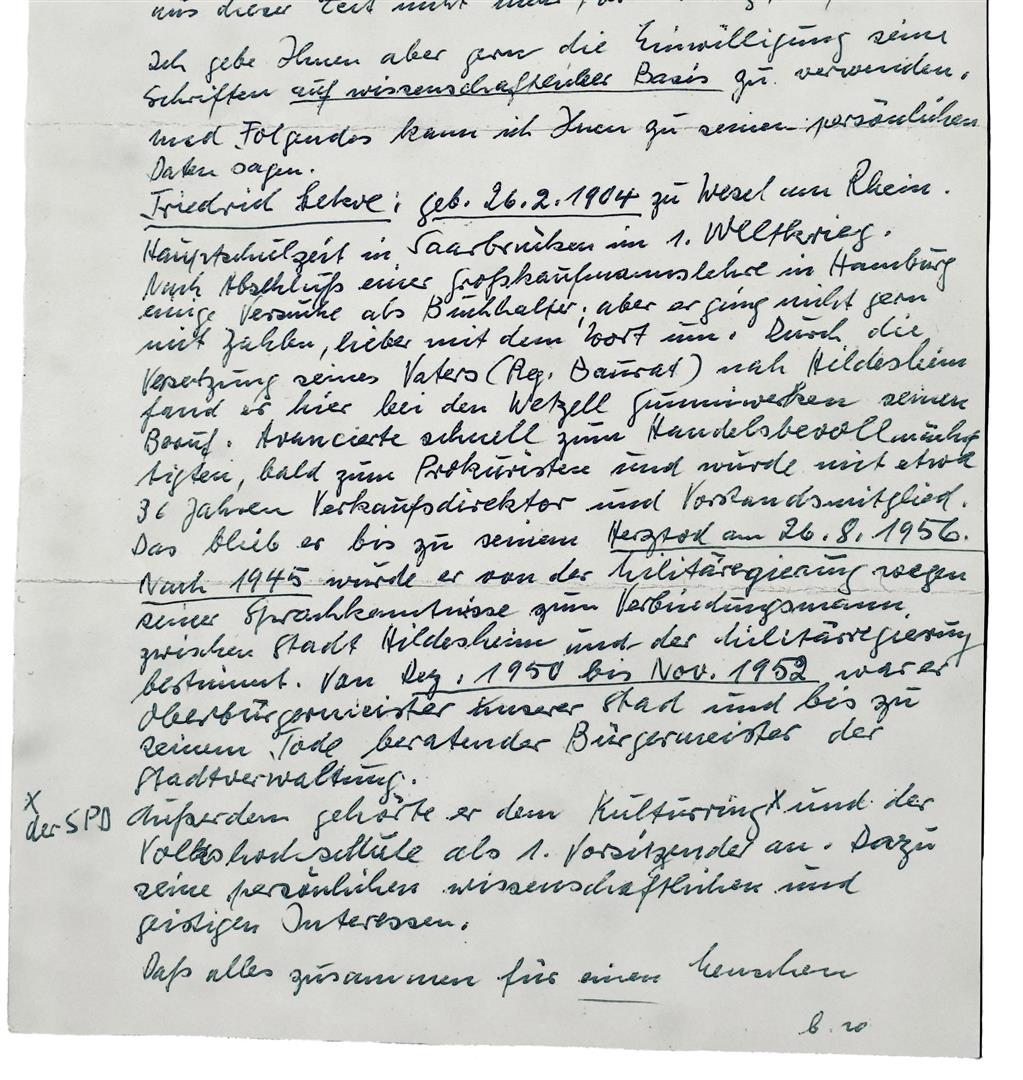 aus dieser Zeit nicht mehr
Ich gebe Ihnen aber gern die Einwilligung seine
Schriften auf wissenschaftlicher Basis zu verwenden.
und Folgendes kann ich Ihnen zu seinen persönlichen
Daten sagen.
Friedrich Lekve: geb. 26.2.1904 zu Wesel am Rhein.
Hauptschulzeit in Saarbrücken im 1. Weltkrieg.
Nach Abschluß einer Großkaufmannslehre in Hamburg
einige Versuche als Buchhalter, aber er ging nicht gern
mit Zahlen, lieber mit dem Wort um. Durch die
Versetzung seines Vaters (Reg. Baurat) nach Hildesheim
fand er hier bei den Wetzell Gummiwerken seinen
Beruf. Avancierte schnell zum Handelsbevollmäch
tigten, bald zum Prokuristen und wurde mit etwa
36 Jahren Verkaufsdirektor und Vorstandsmitglied.
Das blieb er bis zu seinem Herztod am 26.8.1956.
Nach 1945 wurde er von der Militäregierung wegen
seiner Sprachkenntnisse zum Verbindungsmann
zwischen Stadt Hildesheim und der Militärregierung
bestimmt. Von Dez. 1950 bis Nov. 1952 war er
Oberbürgermeister unserer Stad und bis zu
seinem Tode beratender Bürgermeister der
Stadtverwaltung.
x
der SPD
Außerdem gehörte er dem Kulturring x und der
Volkshochschule als 1. Vorsitzender an. Dazu
seine persönlichen wissenschaftlichen und
geistigen Interessen.
Daß alles zusammen für einen Menschen
b. w